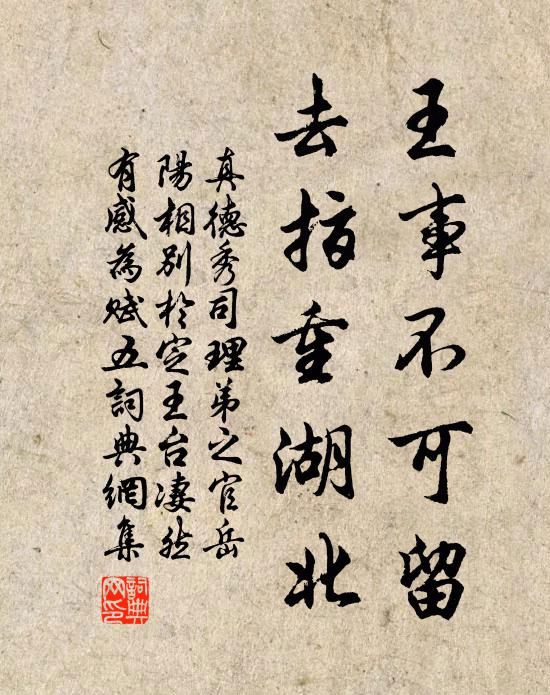 王事不可留
去指重湖北
真德秀司理弟之官岳
陽相別於定王台凄然
有感為賦五詞典網集
詞典網印